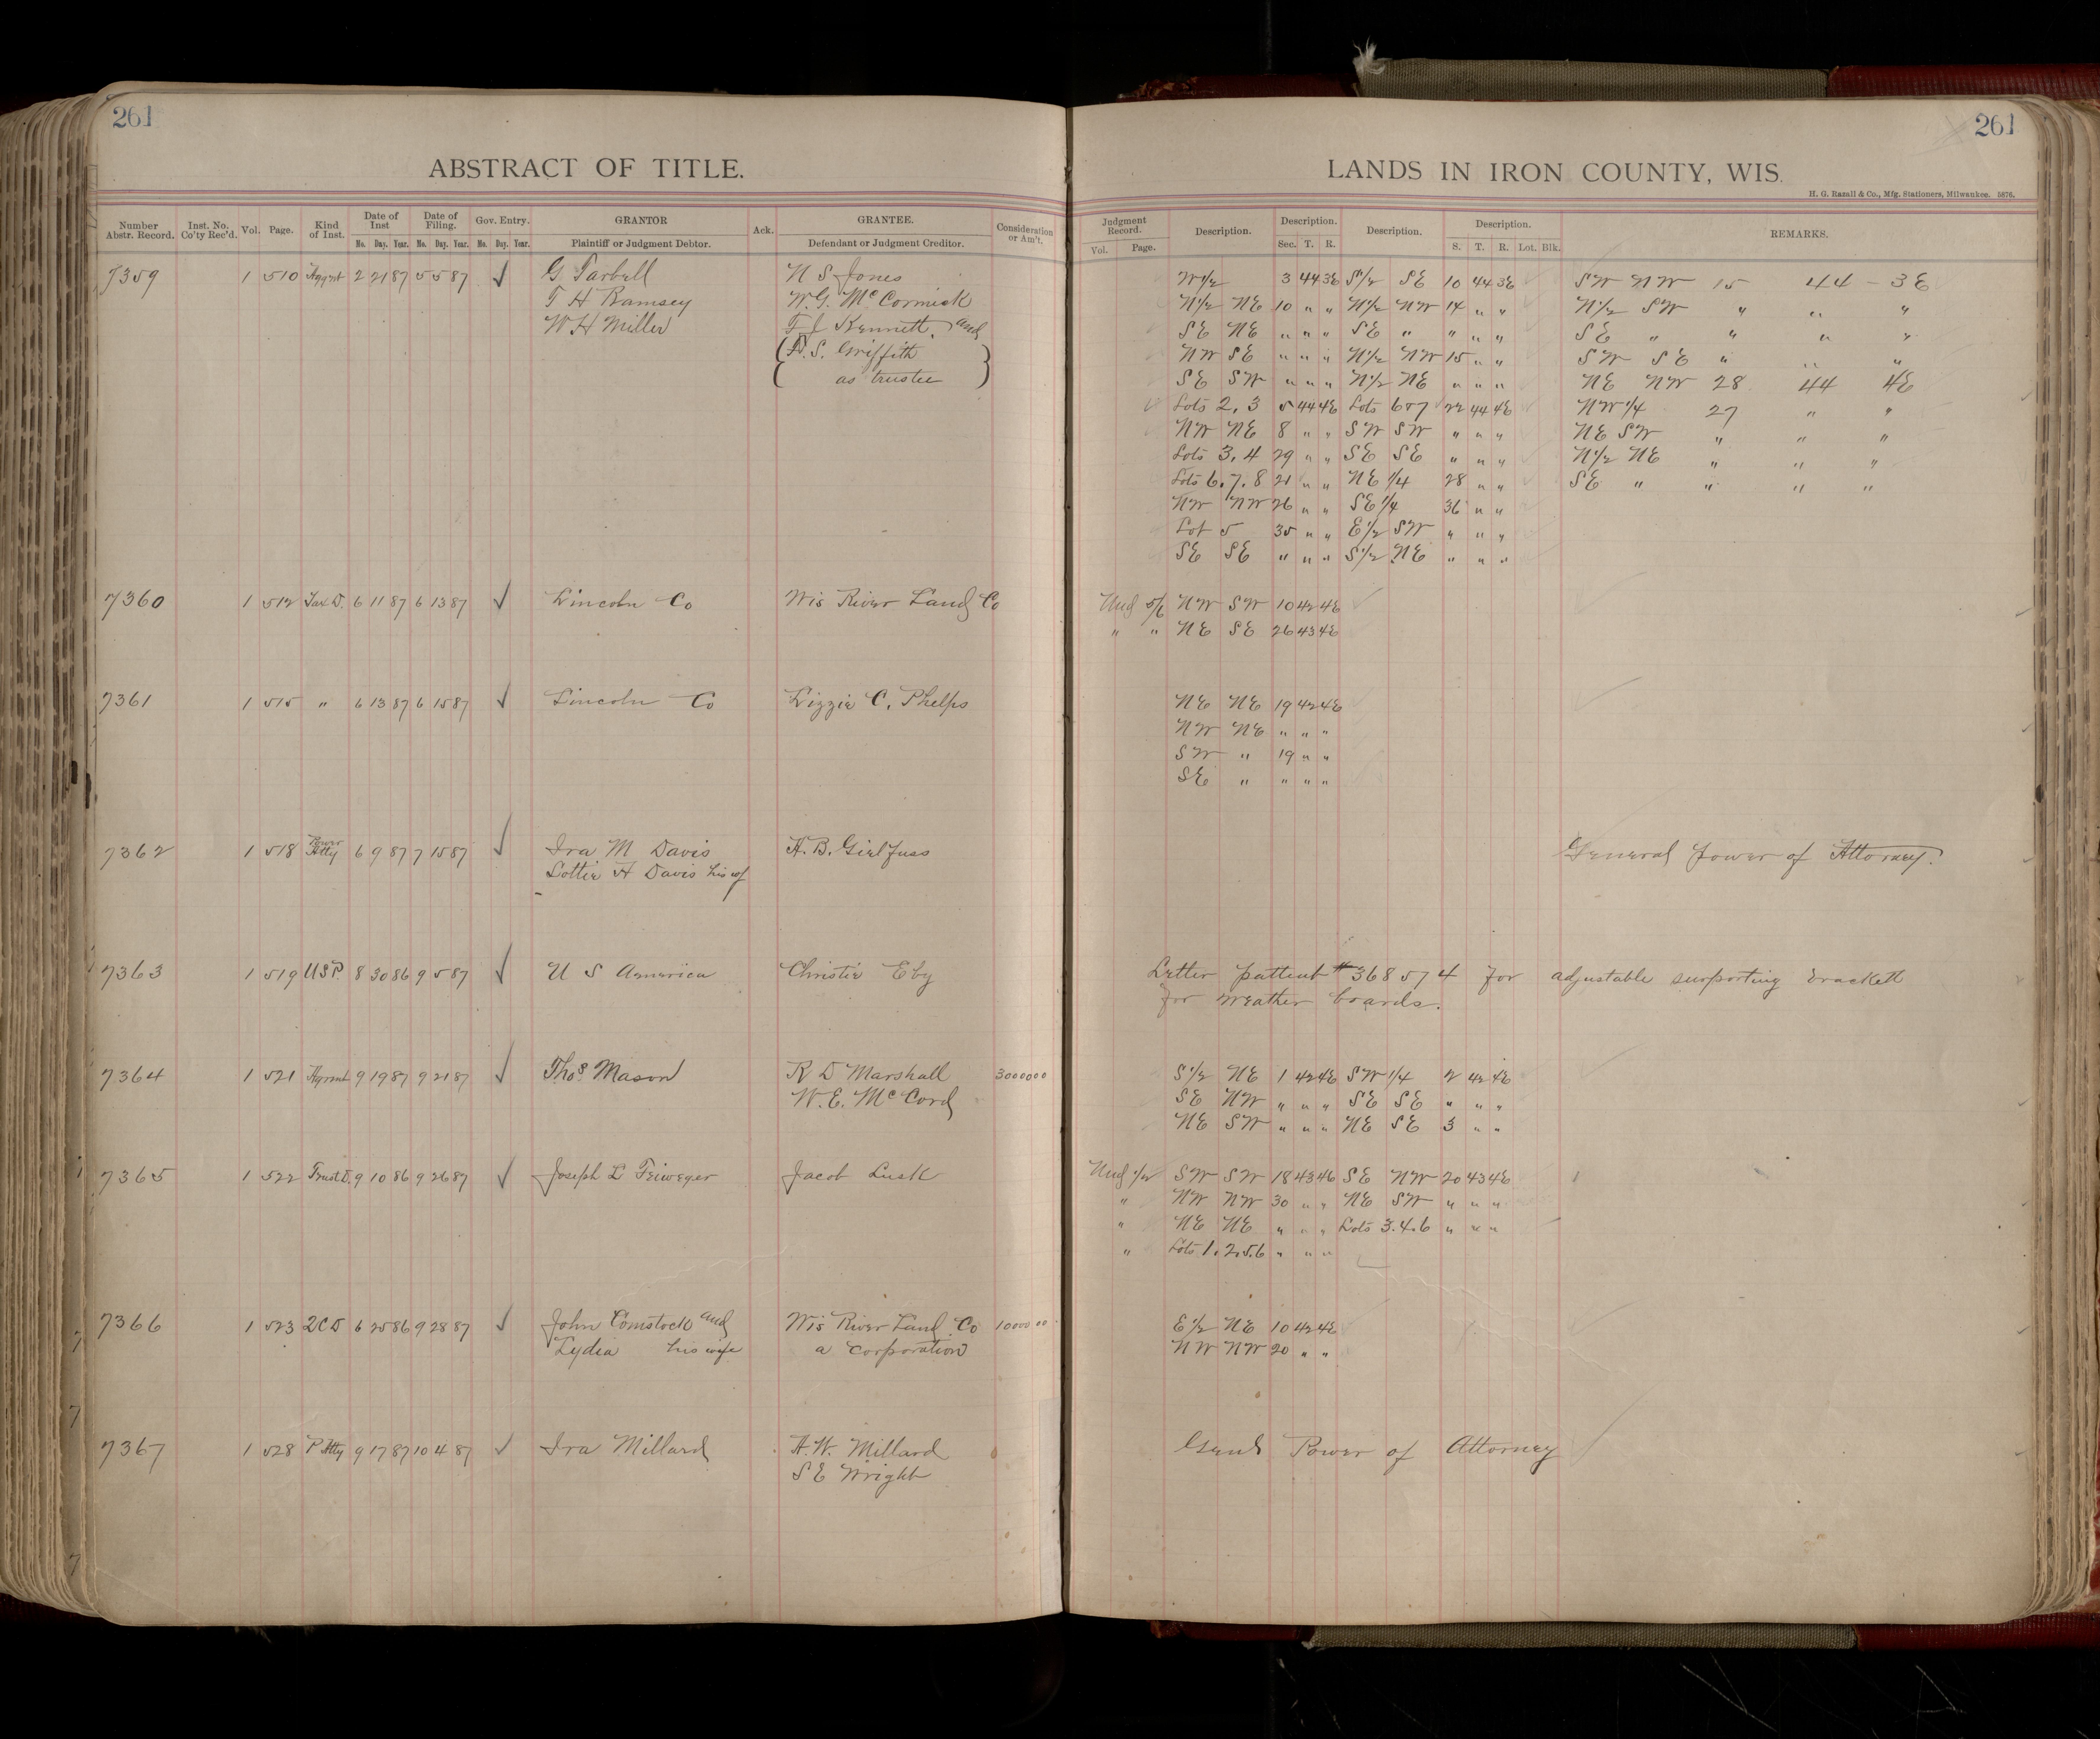 261
261
ABSTRACT OF TITLE.
LANDS IN IRON COUNTY, WIS.
H. G. Razall & Co., Mfg. Stationers, Milwaukee. 5876.
Number Abstr. Record. Inst. No. Co'ty Rec'd. Vol. Page. Kind of Inst. Date of Inst Mo. Day. Year. Date of Filing. Mo. Day. Year. Gov. Entry. Mo. Day. Year. GRANTOR Plaintiff or Judgment Debtor. Ack. GRANTEE. Defendant or Judgment Creditor. Consideration or Am't. Judgment Record. Vol. Page. Description. Description. Sec. T. R. Description. Description. S. T. R. Lot. Blk. REMARKS.
7359 1 510 Agrmt 2 21 87 5 5 87 ✓ G Tarbell N S Jones W 1/2 3 44 3E S 1/2 SE 10 44 3E SW NW 15 44 - 3E
T H Ramsey W. G. McCormick N 1/2 NE 10 " " N 1/2 NW 14 " " N 1/2 SW " " "
W H Miller F J Kennett and SE NE " " " SE " " " " SE " " " "
( S. Griffith NW SE " " " N 1/2 NW 15 " " SW SE " " "
as trustee ) SE SW " " " N 1/2 NE " " " NE NW 28 44 4E
Lots 2, 3 5 44 4E Lots 6 & 7 22 44 4E NW 1/4 27 " "
NW NE 8 " " SW SW " " " NE SW " " "
Lots 3, 4 29 " " SE SE " " " N 1/2 NE " " "
Lots 6, 7, 8 21 " " NE 1/4 28 " " SE " " " "
NW NW 26 " " SE 1/4 36 " "
Lot 5 35 " " E 1/2 SW " " "
SE SE " " " S 1/2 NE " " "
7360 1 512 Tax D. 6 11 87 6 13 87 ✓ Lincoln Co Wis River Land Co Und 5/6 NW SW 10 42 4E
" " NE SE 26 43 4E
7361 1 515 " 6 13 87 6 15 87 ✓ Lincoln Co Lizzie C. Phelps NE NE 19 42 4E
NW NE " " "
SW " 19 " "
SE " " " "
7362 1 518 Power Atty 6 9 87 7 15 87 ✓ Ira M Davis A. B. Girlfuss General Power of Attorney.
Lottie H Davis his wf
7363 1 519 U S P. 8 30 86 9 5 87 ✓ U S America Christie Eby Letter pattent # 368574 for adjustable surporting brackett
for weather boards.
7364 1 521 Agrmt 9 19 87 9 21 87 ✓ Thos. Mason R D Marshall 30000 00 S 1/2 NE 1 42 4E SW 1/4 2 42 4E
W. E. McCord SE NW " " " SE SE " " "
NE SW " " " NE SE 3 " "
7365 1 522 Trust D. 9 10 86 9 26 87 ✓ Joseph L Jacob Lusk Und 1/2 SW SW 18 43 4E SE NW 20 43 4E
" NW NW 30 " " NE SW " " "
" NE NE " " " Lots 3.4.6 " " "
" Lots 1.2.5.6 " " "
7366 1 523 2 C D 6 25 86 9 28 87 ✓ John Comstock and Wis River Land Co 1000 00 E 1/2 NE 10 42 4E
Lydia his wife a corporation NW NW 20 " "
7367 1 528 P Atty 9 17 87 10 4 87 ✓ Ira Millard A. W. Millard Genl Power of Attorney
S E Wright